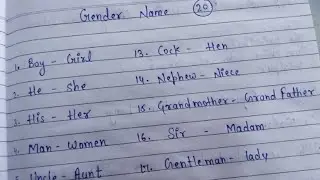 Gender Name 20
1. Boy - Girl
2. He - She
3. His - Her
4. Man - Women
Uncle - Aunt
13. Cock - Hen
14. Nephew - Niece
15. Grandmother - Grand Father
16. Sir - Madam
17. Gentleman - lady